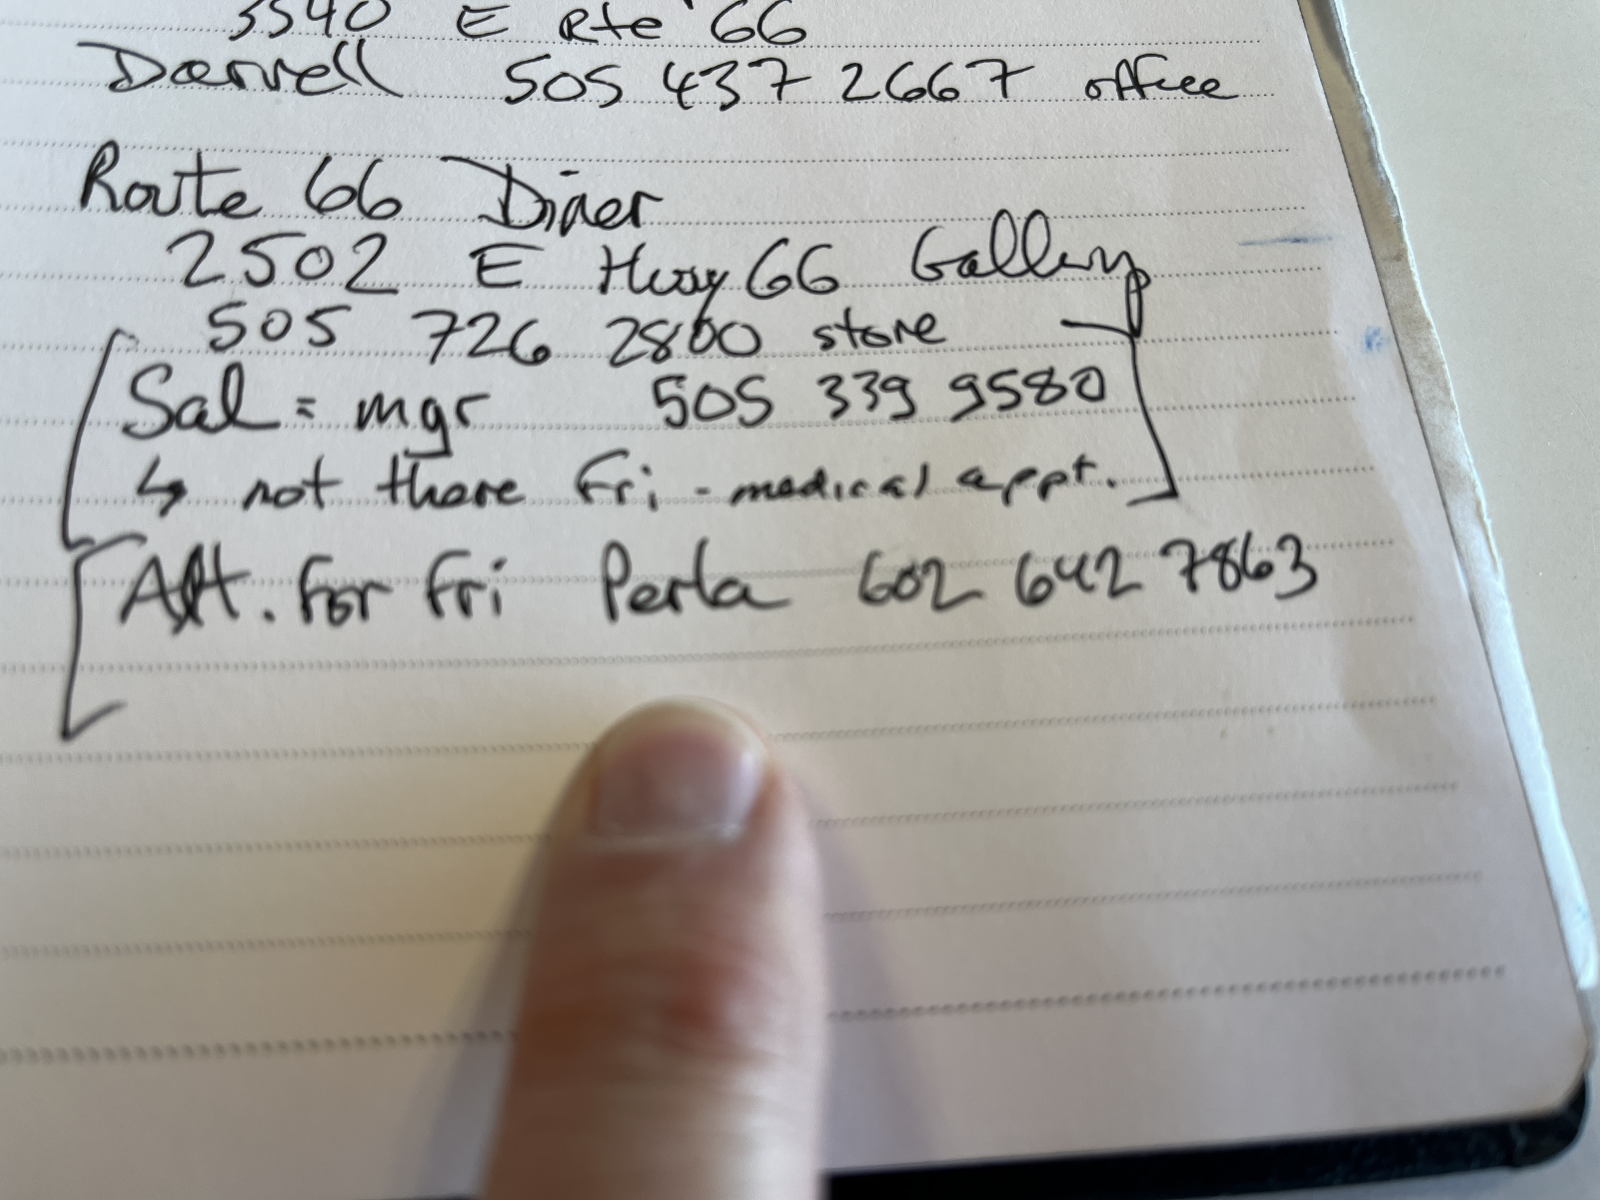 3540 E Rte 66
Darrell 505 437 2667 office
Route 66 Diner
2502 E Hwy 66 Gallup
505 726 2800 store
Sal = mgr 505 339 9580
↳ not there Fri - medical appt.
Alt. For Fri Perla 602 642 7863